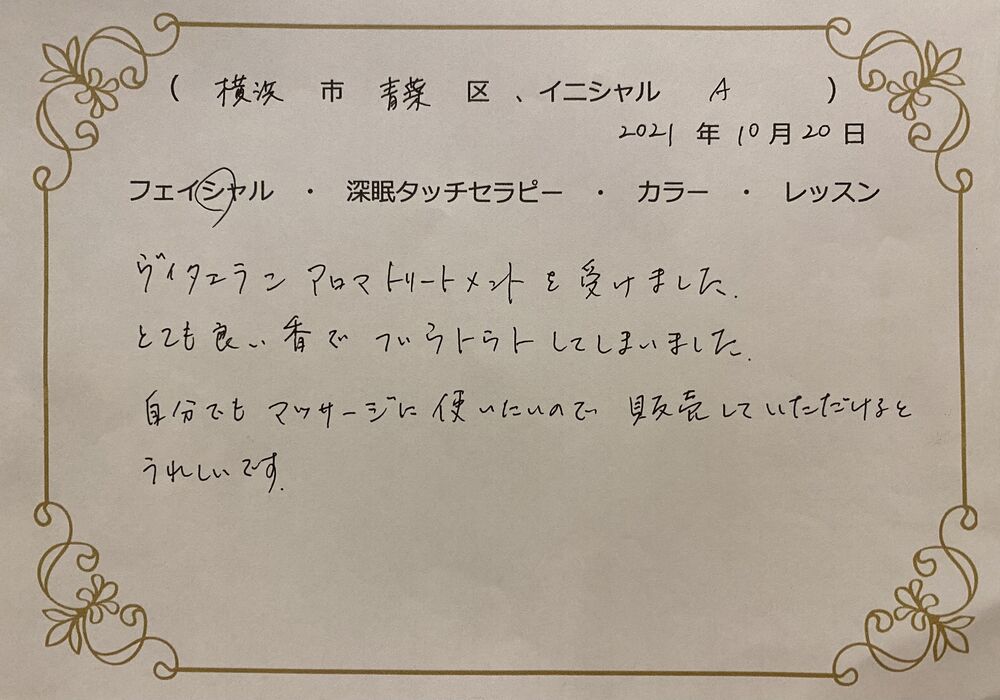 ( 横浜 市 青葉 区 、イニシャル A )
2021 年 10 月 20 日
フェイシャル ・ 深眠タッチセラピー ・ カラー ・ レッスン
ヴィタエラン アロマトリートメントを受けました.
とても良い香で ついうトウトしてしまいました.
自分でも マッサージに使いたいので 販売していただけると
うれしいです.